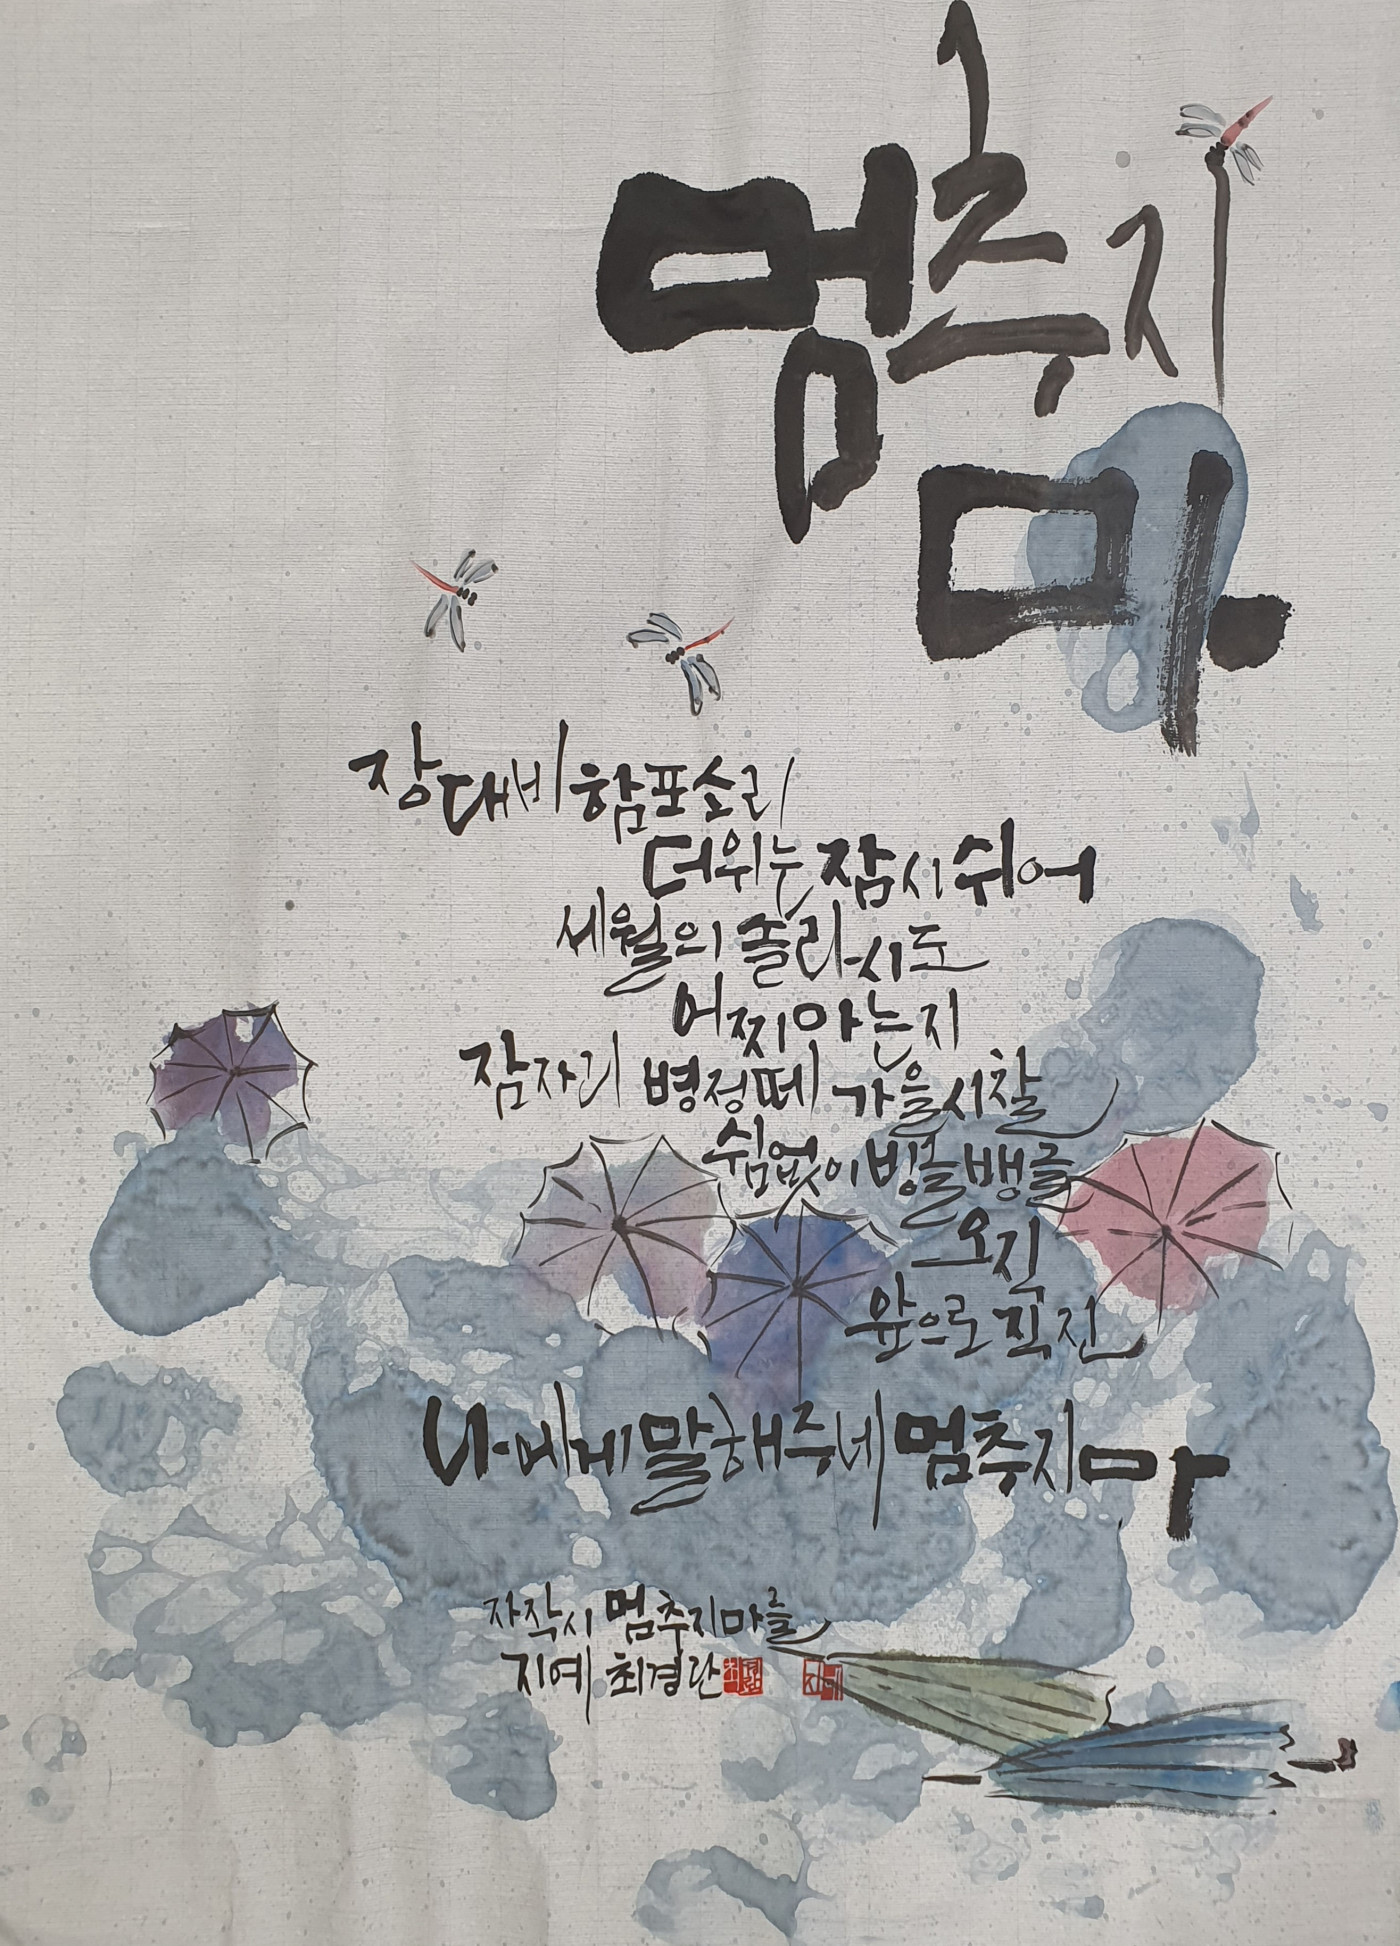 멈추지
마
장대비 함포소리
더위는 잠시 쉬어
세월의 쏠라시도
어찌 아는지
잠자리 병정떼 가을시찰
쉼없이 빙글뱅글
오직
앞으로 직진
나에게 말해주네 멈추지마
자작시 멈추지마를
지예 최경란